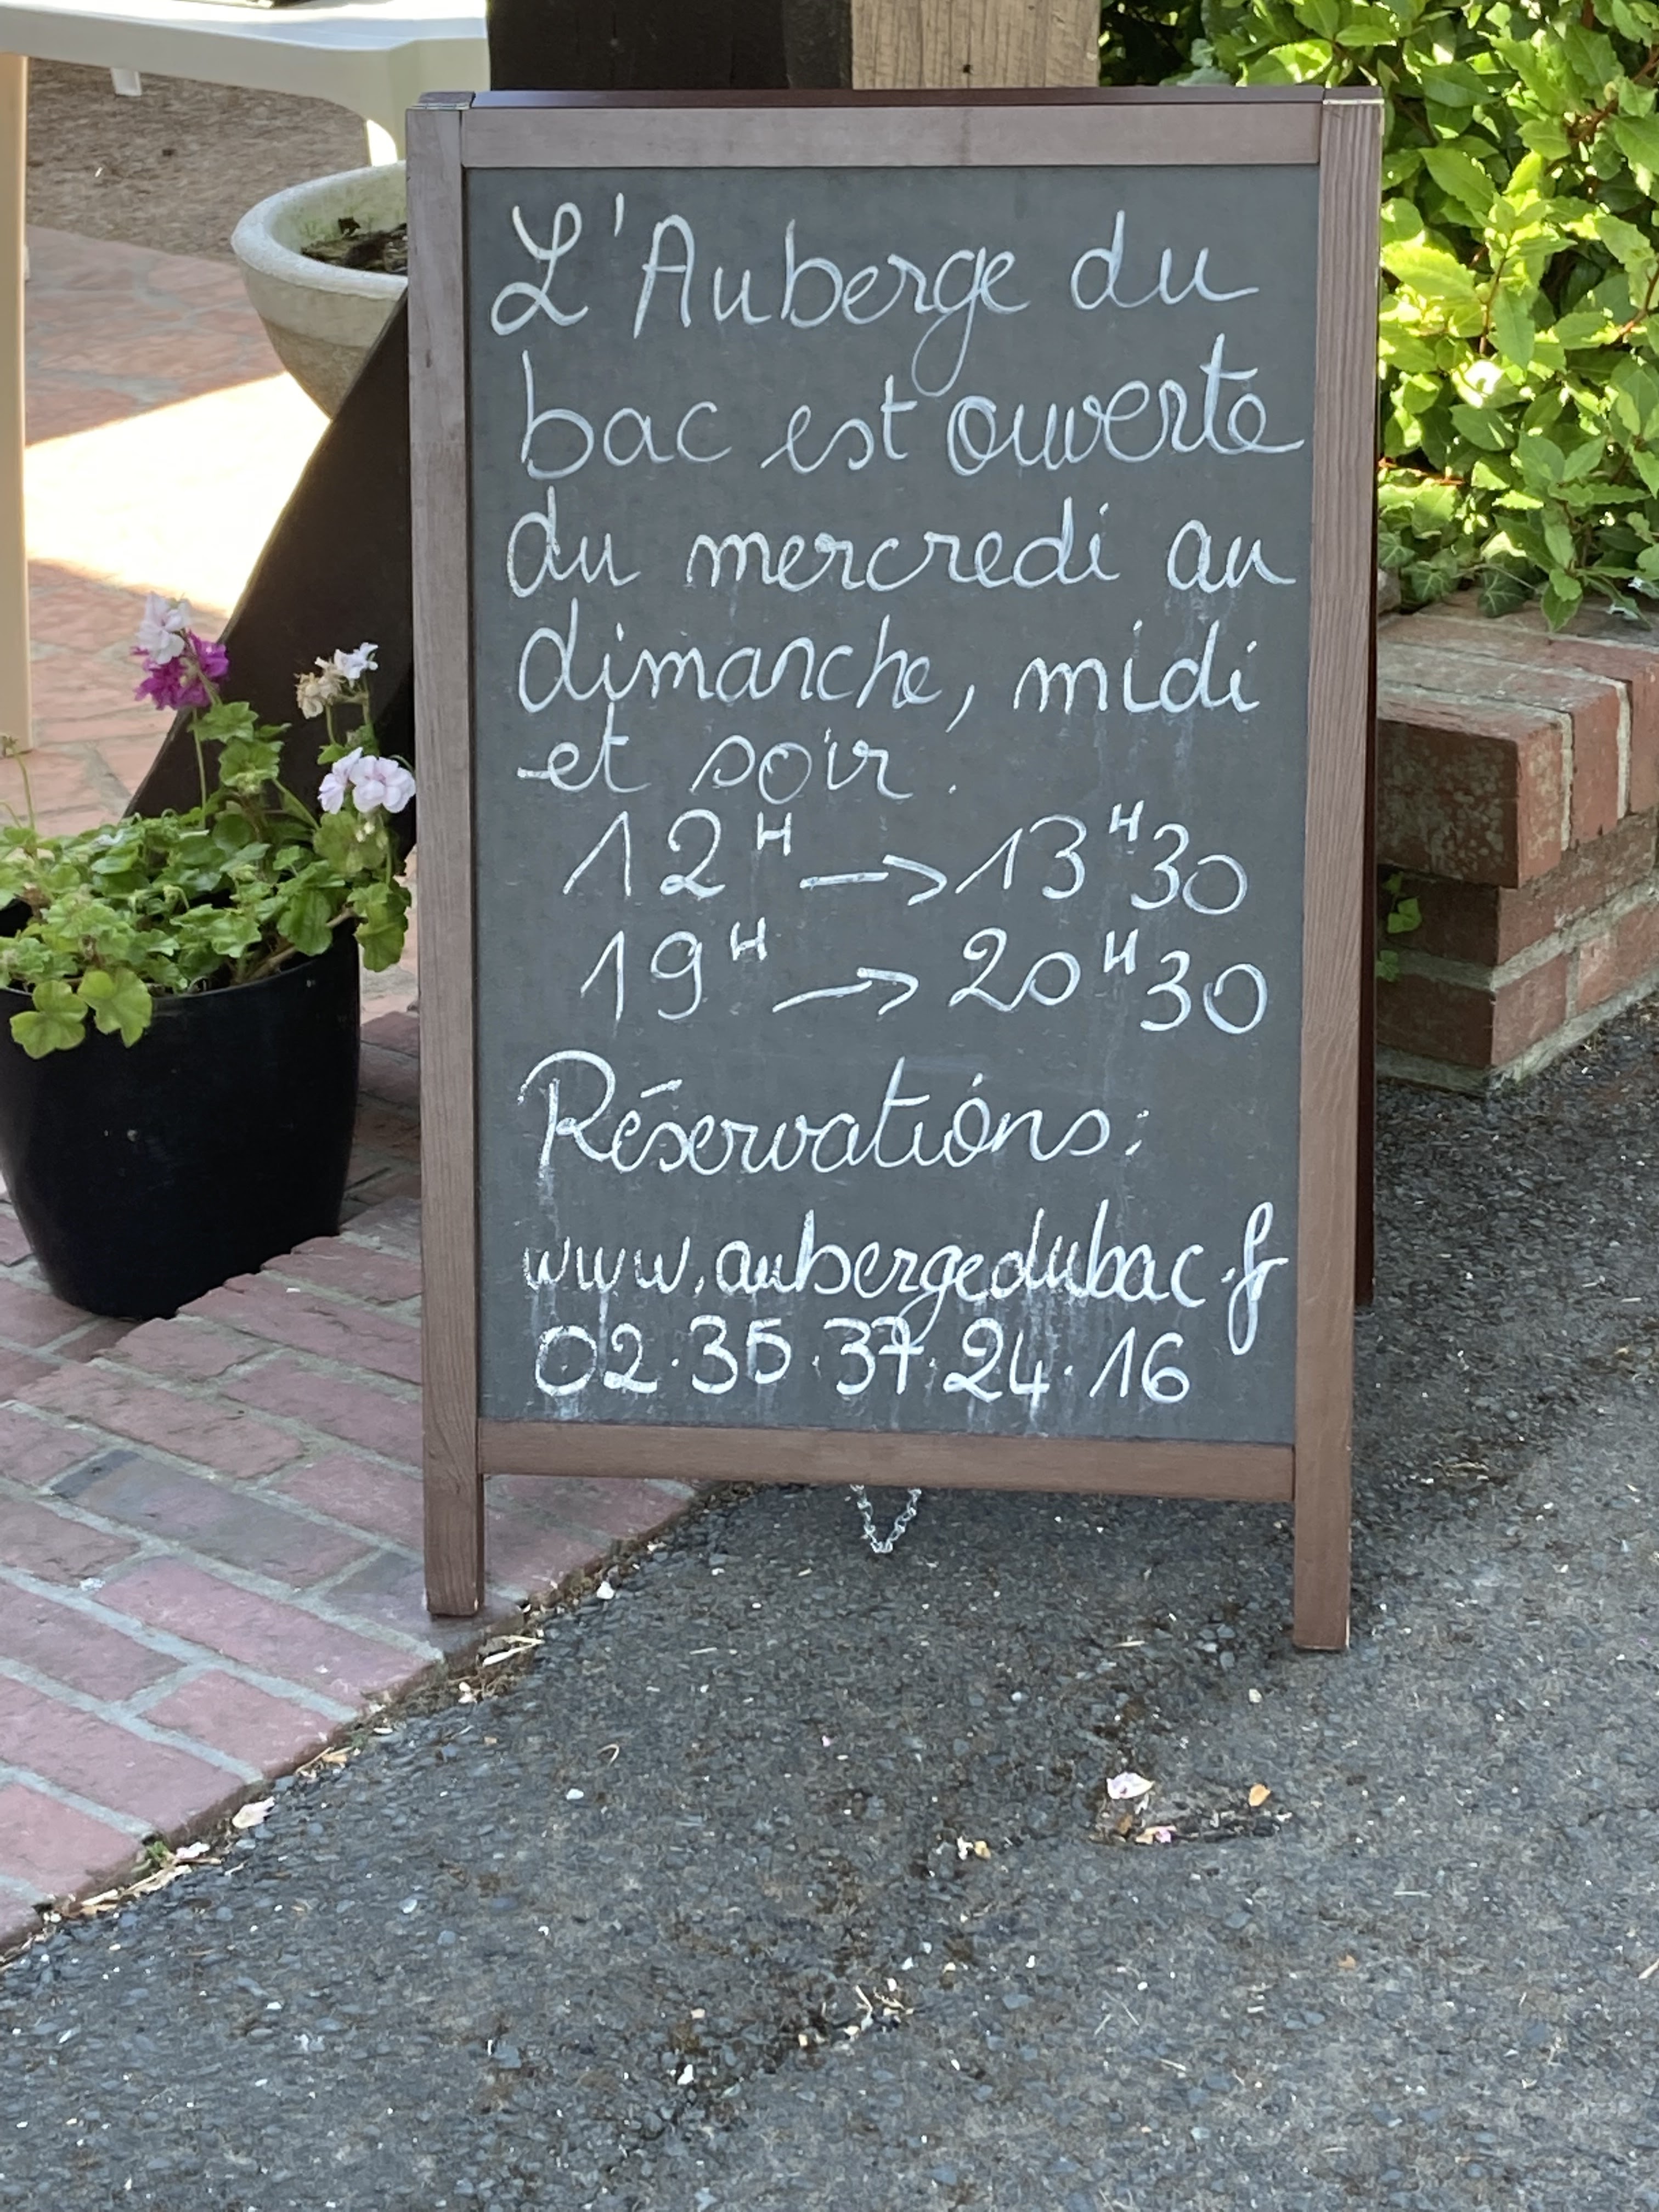 L'Auberge du
bac est ouverte
du mercredi au
dimanche, midi
et soir.
12H → 13H30
19H → 20H30
Réservations:
www.aubergedubac.fr
02.35.37.24.16